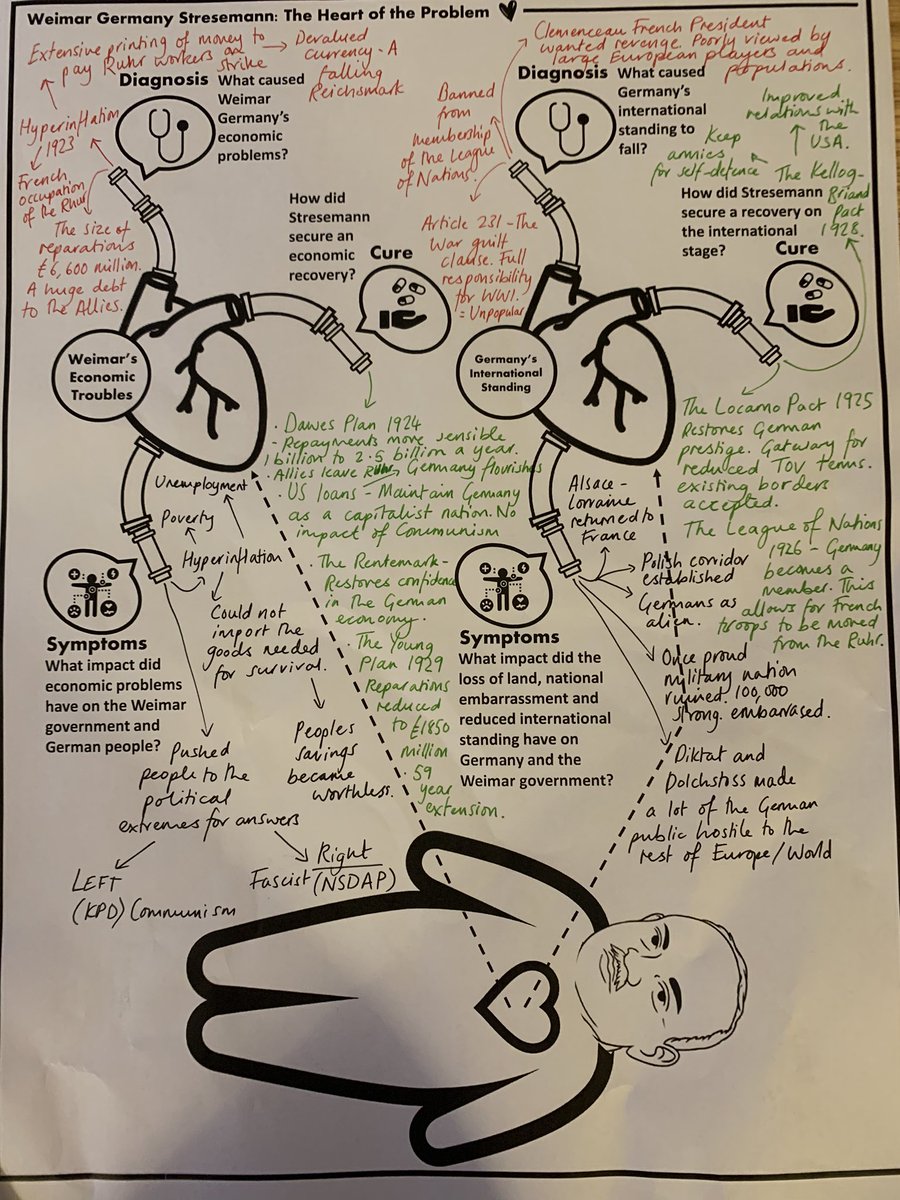 Weimar Germany Stresemann: The Heart of the Problem
Extensive printing of money to
pay Ruhr workers on
strike
Devalued
currency - A
falling
Reichsmark
Diagnosis
What caused
Weimar
Germany's
economic
problems?
Hyperinflation
1923
French
occupation
of the Rhur
The size of
reparations
£6,600 million.
A huge debt
to the Allies.
How did
Stresemann
secure an
economic
recovery?
Cure
Weimar's
Economic
Troubles
· Dawes Plan 1924
- Repayments more sensible
1 billion to 2.5 billion a year.
· Allies leave Ruhr → Germany flourishes
· US loans - Maintain Germany
as a capitalist nation. No
impact of Communism
· The Rentemark -
Restores confidence
in the German
economy.
· The Young
Plan 1929
Reparations
reduced
to £1850
million
· 59
year
extension.
Unemployment
Poverty
Hyperinflation
Could not
import the
goods needed
for survival.
Peoples
savings
became
worthless.
Symptoms
What impact did
economic problems
have on the Weimar
government and
German people?
Pushed
people to the
political
extremes for answers
LEFT
(KPD) Communism
Right
Fascist (NSDAP)
Clemenceau French President
wanted revenge. Poorly viewed by
large European players and
populations.
Diagnosis
What caused
Germany's
international
standing to
fall?
Banned
from
membership
of the League
of Nations
Article 231 - The
War guilt
clause. Full
responsibility
for WW1.
= Unpopular
Improved
relations with
the
USA.
Keep
armies
for self-defence
The Kellog-
Briand
Pact
1928.
How did Stresemann
secure a recovery on
the international
stage?
Cure
Germany's
International
Standing
The Locarno Pact 1925
Restores German
prestige. Gateway for
reduced TOV terms.
existing borders
accepted.
The League of Nations
1926 - Germany
becomes a
member. This
allows for French
troops to be moved
from the Ruhr.
Alsace -
Lorraine
returned to
France
Polish corridor
established
Germans as
alien.
Once proud
military nation
ruined. 100,000
strong. embarrased.
Diktat and
Dolchstoss made
a lot of the German
public hostile to the
rest of Europe/World
Symptoms
What impact did the
loss of land, national
embarrassment and
reduced international
standing have on
Germany and the
Weimar government?